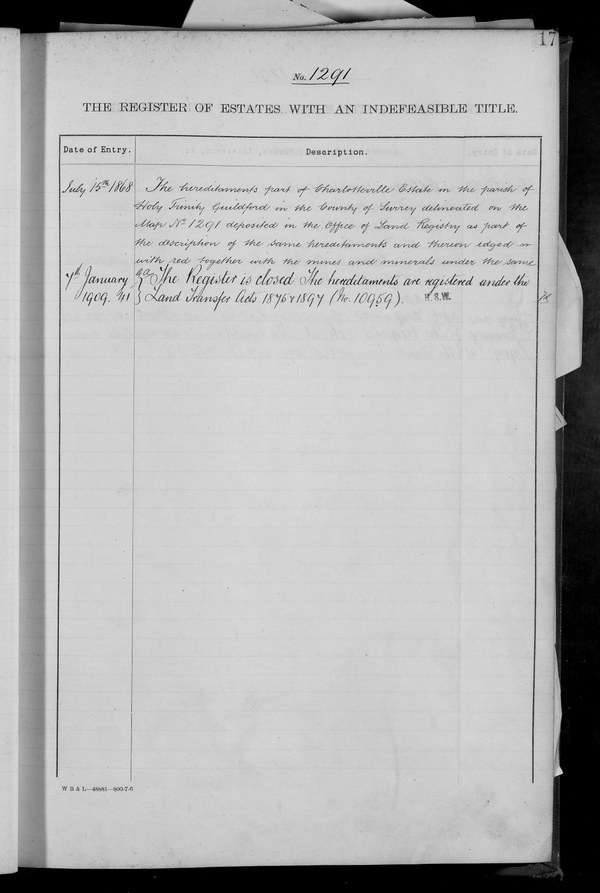 17
No. 1291
THE REGISTER OF ESTATES WITH AN INDEFEASIBLE TITLE.
Date of Entry.
Description.
July 15th 1868
The hereditaments part of Charlotteville Estate in the parish of
Holy Trinity Guildford in the County of Surrey delineated on the
Map No. 1291 deposited in the Office of Land Registry as part of
the description of the same hereditaments and thereon edged in
with red together with the mines and minerals under the same
7th January
1909.
The Register is closed The hereditaments are registered under the
Land Transfer Acts 1875 & 1897 (No. 10959).
H.S.W.
W B & L—48881—800-7-6